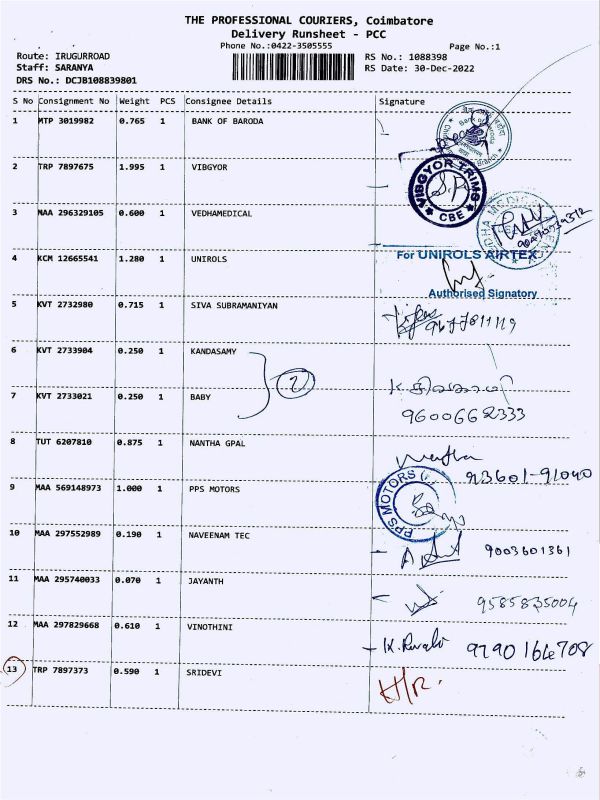 THE PROFESSIONAL COURIERS, Coimbatore
Delivery Runsheet - PCC
Phone No.:0422-3505555 Page No.:1
Route: IRUGURROAD RS No.: 1088398
Staff: SARANYA RS Date: 30-Dec-2022
DRS No.: DCJB108839801
S No Consignment No Weight PCS Consignee Details Signature
1 MTP 3019982 0.765 1 BANK OF BARODA
2 TRP 7897675 1.995 1 VIBGYOR
VIBGYOR TRIMS CBE
3 MAA 296329105 0.600 1 VEDHAMEDICAL
4 KCM 12665541 1.280 1 UNIROLS
For UNIROLS AIRTEX
Authorised Signatory
5 KVT 2732980 0.715 1 SIVA SUBRAMANIYAN
9677811119
6 KVT 2733904 0.250 1 KANDASAMY
2
7 KVT 2733021 0.250 1 BABY
9600662333
8 TUT 6207810 0.875 1 NANTHA GPAL
93601-91040
9 MAA 569148973 1.000 1 PPS MOTORS
PPS MOTORS
10 MAA 297552989 0.190 1 NAVEENAM TEC 9003601361
11 MAA 295740033 0.070 1 JAYANTH 9585835004
12 MAA 297829668 0.610 1 VINOTHINI 9790164708
13 TRP 7897373 0.590 1 SRIDEVI H/R.